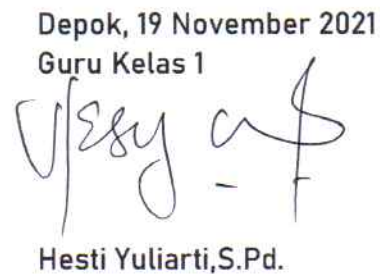 Depok, 19 November 2021
Guru Kelas 1
Hesti Yuliarti,S.Pd.